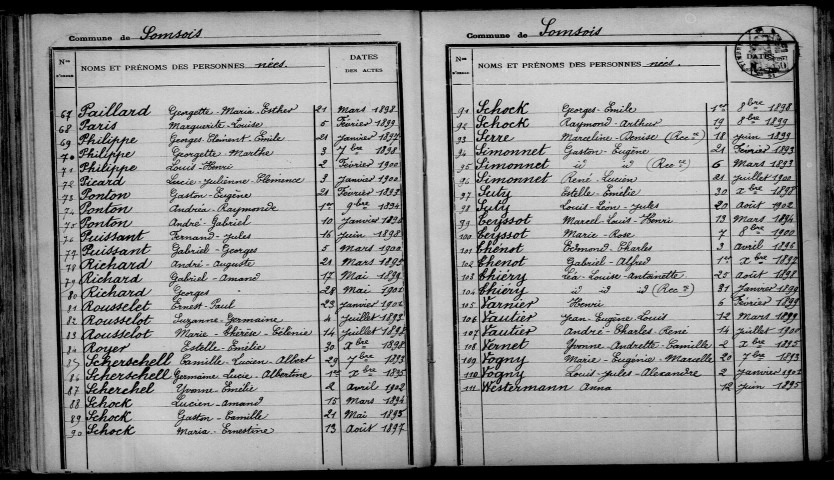 Commune de Somsois
Nos d'ordre NOMS ET PRÉNOMS DES PERSONNES nées. DATES DES ACTES
67 Paillard Georgette-Maria-Esther 21 Mars 1898
68 Paris Marguerite-Louise 5 Février 1899
69 Philippe Georges-Clément-Emile 21 Janvier 1897
70 Philippe Georgette-Marthe 3 7bre 1898
71 Philippe Louis-Henri 2 Février 1900
72 Picard Lucie-Julienne-Clémence 3 Janvier 1900
73 Ponton Gaston-Eugène 21 Février 1893
74 Ponton Andréa-Raymonde 1er 9bre 1894
75 Ponton André-Gabriel 10 Janvier
76 Puissant Fernand-Jules 16 Juin 1898
77 Puissant Gabriel-Georges 5 Mars 1900
78 Richard André-Auguste 21 Mars 1895
79 Richard Gabriel-Amand 17 Mai 1899
80 Richard Georges 28 Mai 1902
81 Rousselet Ernest-Paul 23 Janvier 1902
82 Rousselot Suzanne-Germaine 4 Juillet 1893
83 Rousselot Marie-Thérèse-Célénie 14 Juillet 1898
84 Royer Estelle-Emélie 30 Xbre 1898
85 Scherschell Camille-Lucien-Albert 29 7bre 1893
86 Scherschell Germaine-Lucie-Albertine 1er Xbre 1895
87 Scherchel Yvonne-Emélie 2 Avril 1902
88 Schock Lucien-Amand 15 Mars 1894
89 Schock Gaston-Camille 21 Mai 1895
90 Schock Maria-Ernestine 13 Août 1897
Commune de Somsois
Nos d'ordre NOMS ET PRÉNOMS DES PERSONNES nées. DATES
91 Schock Georges-Emile 1er 8bre 1898
92 Schock Raymond-Arthur 19 8bre 1899
93 Serre Marceline-Denise (Rec ce) 18 Juin 1899
94 Simonnet Gaston-Eugène 21 Février 1893
95 Simonnet id id (Rec ce) 6 Mars 1893
96 Simonnet René-Lucien 21 Juillet 1900
97 Suty Estelle-Emélie 30 Xbre 1898
98 Suty Louis-Léon-Jules 20 Août 1902
99 Ceyssot Marcel-Louis-Henri 13 Mars 1894
100 Ceyssot Marie-Rose 7 8bre 1900
101 Thénot Edmond-Charles 3 Avril 1896
102 Thenot Gabriel-Alfred 1er Xbre 1897
103 Thiéry Léa-Louise-Antoinette 25 Août 1898
104 Thiéry id id id (Rec ce) 31 Janvier 1899
105 Varnier Henri 6 Février 1899
106 Vautier Jean-Eugène-Louis 12 Mars 1899
107 Vautier André-Charles-René 14 Juillet 1900
108 Vernet Yvonne-Andrette-Camille 2 Xbre 1895
109 Vogny Marie-Eugénie-Marcelle 20 7bre 1893
110 Vogny Louis-Jules-Alexandre 2 Janvier 1902
111 Westermann Anna 12 Juin 1895